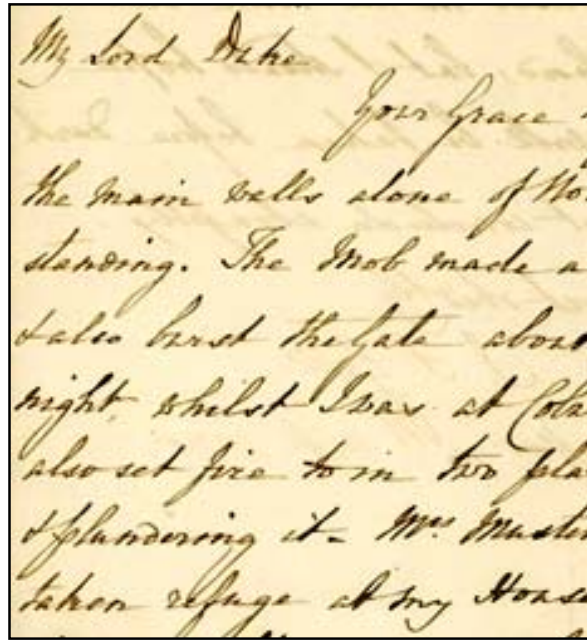 My Lord Duke
Your Grace
the main walls alone of
standing. The Mob made a
& also burst the Gate about
night, whilst I was at
also set fire to in two
& plundering it - Mrs
taken refuge at my House